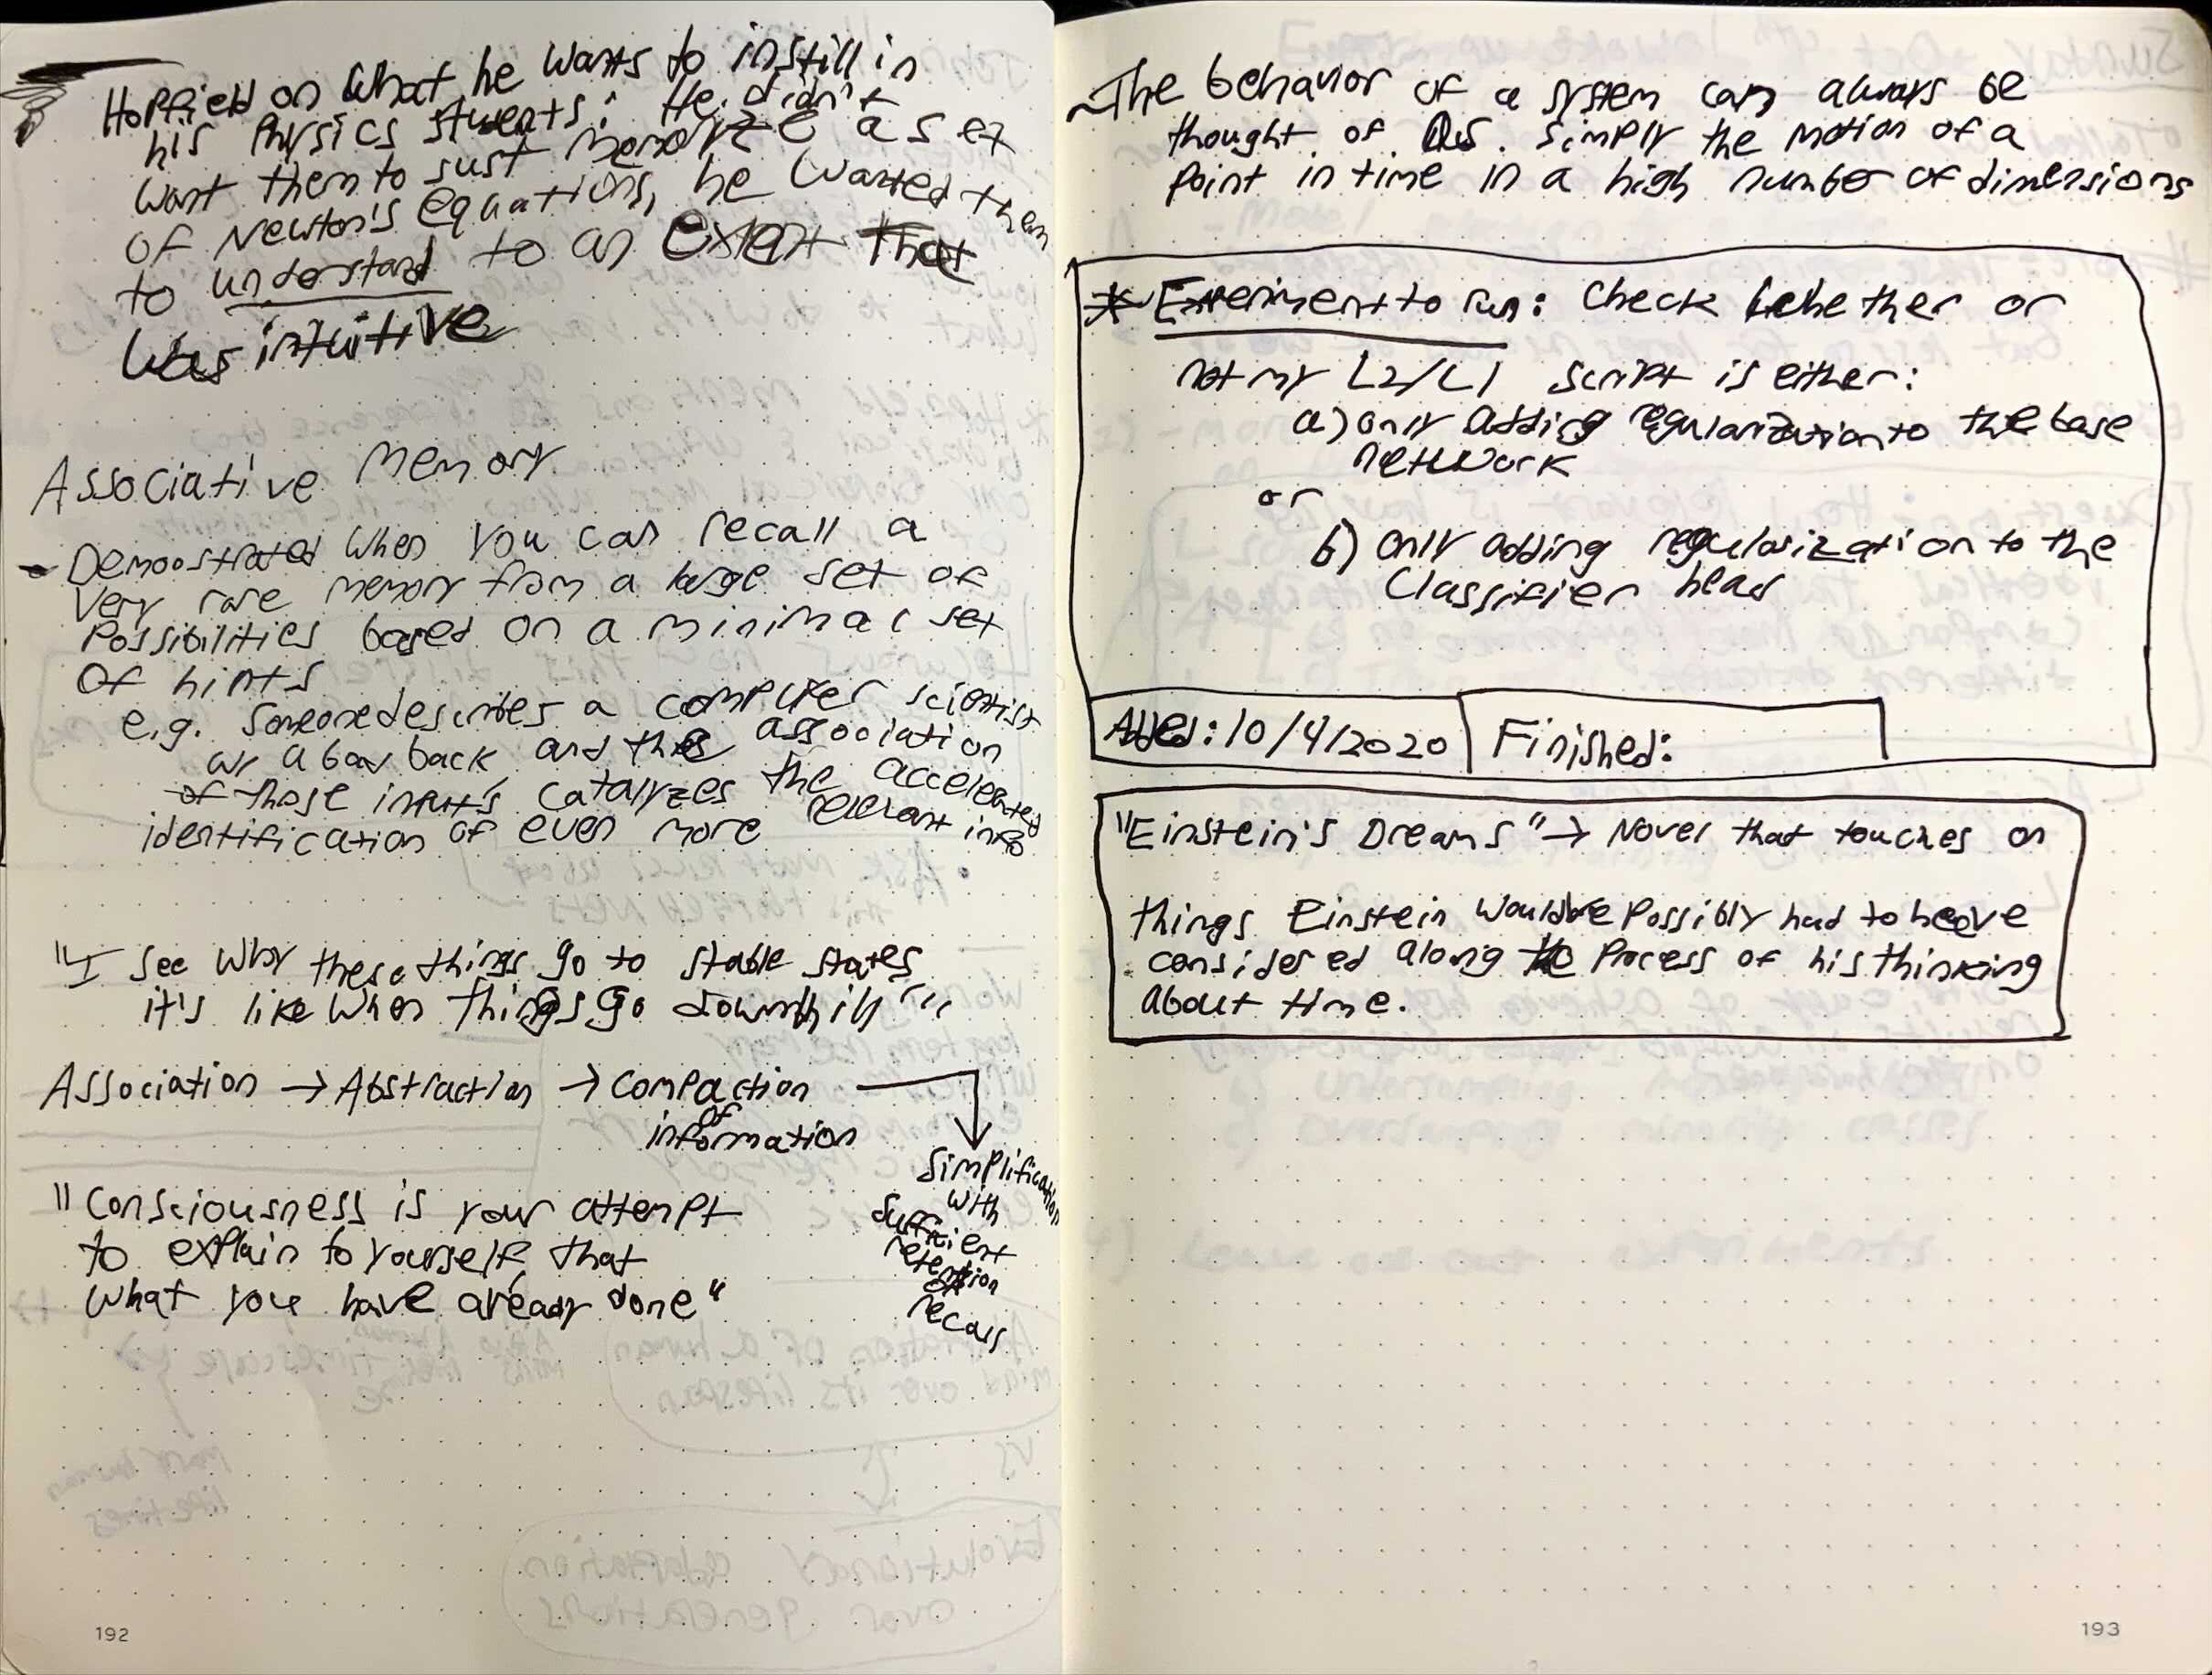 Hopfield on what he wants to instill in
his Physics students: He didn't
want them to just memorize a set
of Newton's equations, he wanted them
to understand to an extent that
was intuitive
Associative Memory
- Demonstrated when you can recall a
very rare memory from a large set of
possibilities based on a minimal set
of hints
e.g. Someone describes a computer scientist
w/ a bow back and the association
of those inputs catalyzes the accelerated
identification of even more relevant info
"I see why these things go to stable states
it's like when things go downhill"
Association → Abstraction → Compaction
of
information
Simplification
with
sufficient
retention
of
recall
"Consciousness is your attempt
to explain to yourself that
what you have already done"
192
~The behavior of a system can always be
thought of as simply the motion of a
point in time in a high number of dimensions
* Experiment to run: Check whether or
not my L2/L1 script is either:
a) only adding regularization to the base
network
or
b) only adding regularization to the
classifier head
Added: 10/4/2020 Finished:
"Einstein's Dreams" → Novel that touches on
things Einstein would've possibly had to have
considered along the process of his thinking
about time.
193